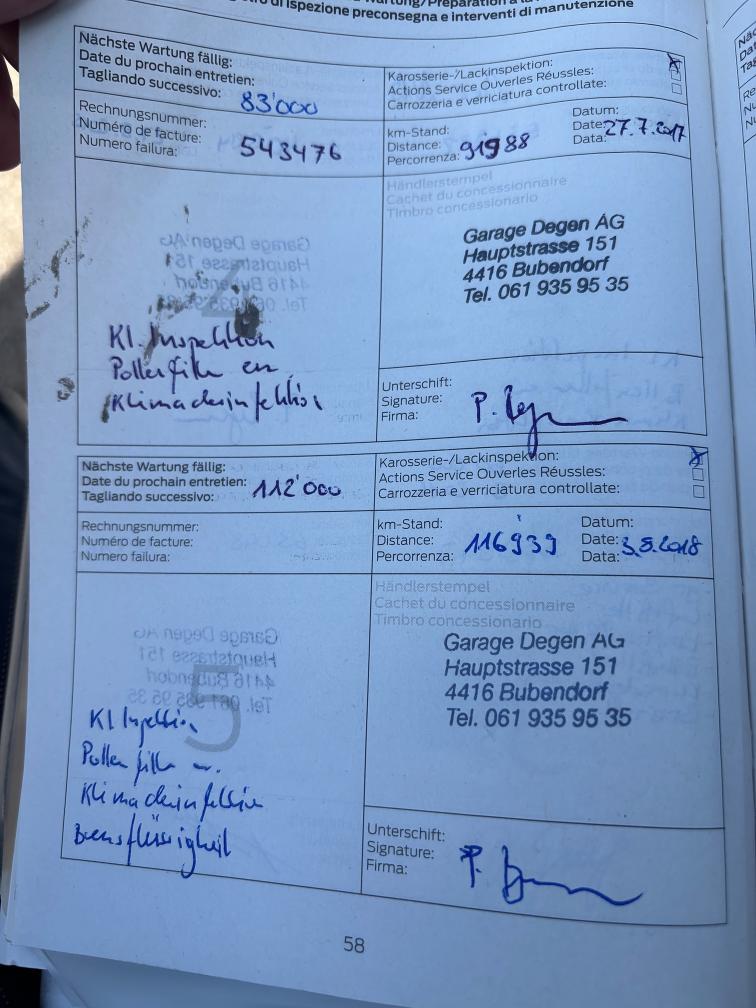 di ispezione preconsegna e interventi di manutenzione
Nächste Wartung fällig:
Date du prochain entretien:
Tagliando successivo: 83'000
Karosserie-/Lackinspektion:
Actions Service Ouverles Réussles:
Carrozzeria e verriciatura controllate:
Rechnungsnummer:
Numéro de facture:
Numero failura: 543476
km-Stand:
Distance:
Percorrenza: 91988
Datum:
Date: 27.7.2017
Data:
Händlerstempel
Cachet du concessionnaire
Timbro concessionario
Garage Degen AG
Hauptstrasse 151
4416 Bubendorf
Tel. 061 935 95 35
Kl. Inspektion
Pollenfilter
Klimadesinfektion
Unterschift:
Signature:
Firma:
Nächste Wartung fällig:
Date du prochain entretien:
Tagliando successivo: 112'000
Karosserie-/Lackinspektion:
Actions Service Ouverles Réussles:
Carrozzeria e verriciatura controllate:
Rechnungsnummer:
Numéro de facture:
Numero failura:
km-Stand:
Distance:
Percorrenza: 116939
Datum:
Date: 3.8.2018
Data:
Händlerstempel
Cachet du concessionnaire
Timbro concessionario
Garage Degen AG
Hauptstrasse 151
4416 Bubendorf
Tel. 061 935 95 35
5
Kl Inspektion
Pollenfilter
Klimadesinfektion
Bremsflüssigkeit
Unterschift:
Signature:
Firma:
58